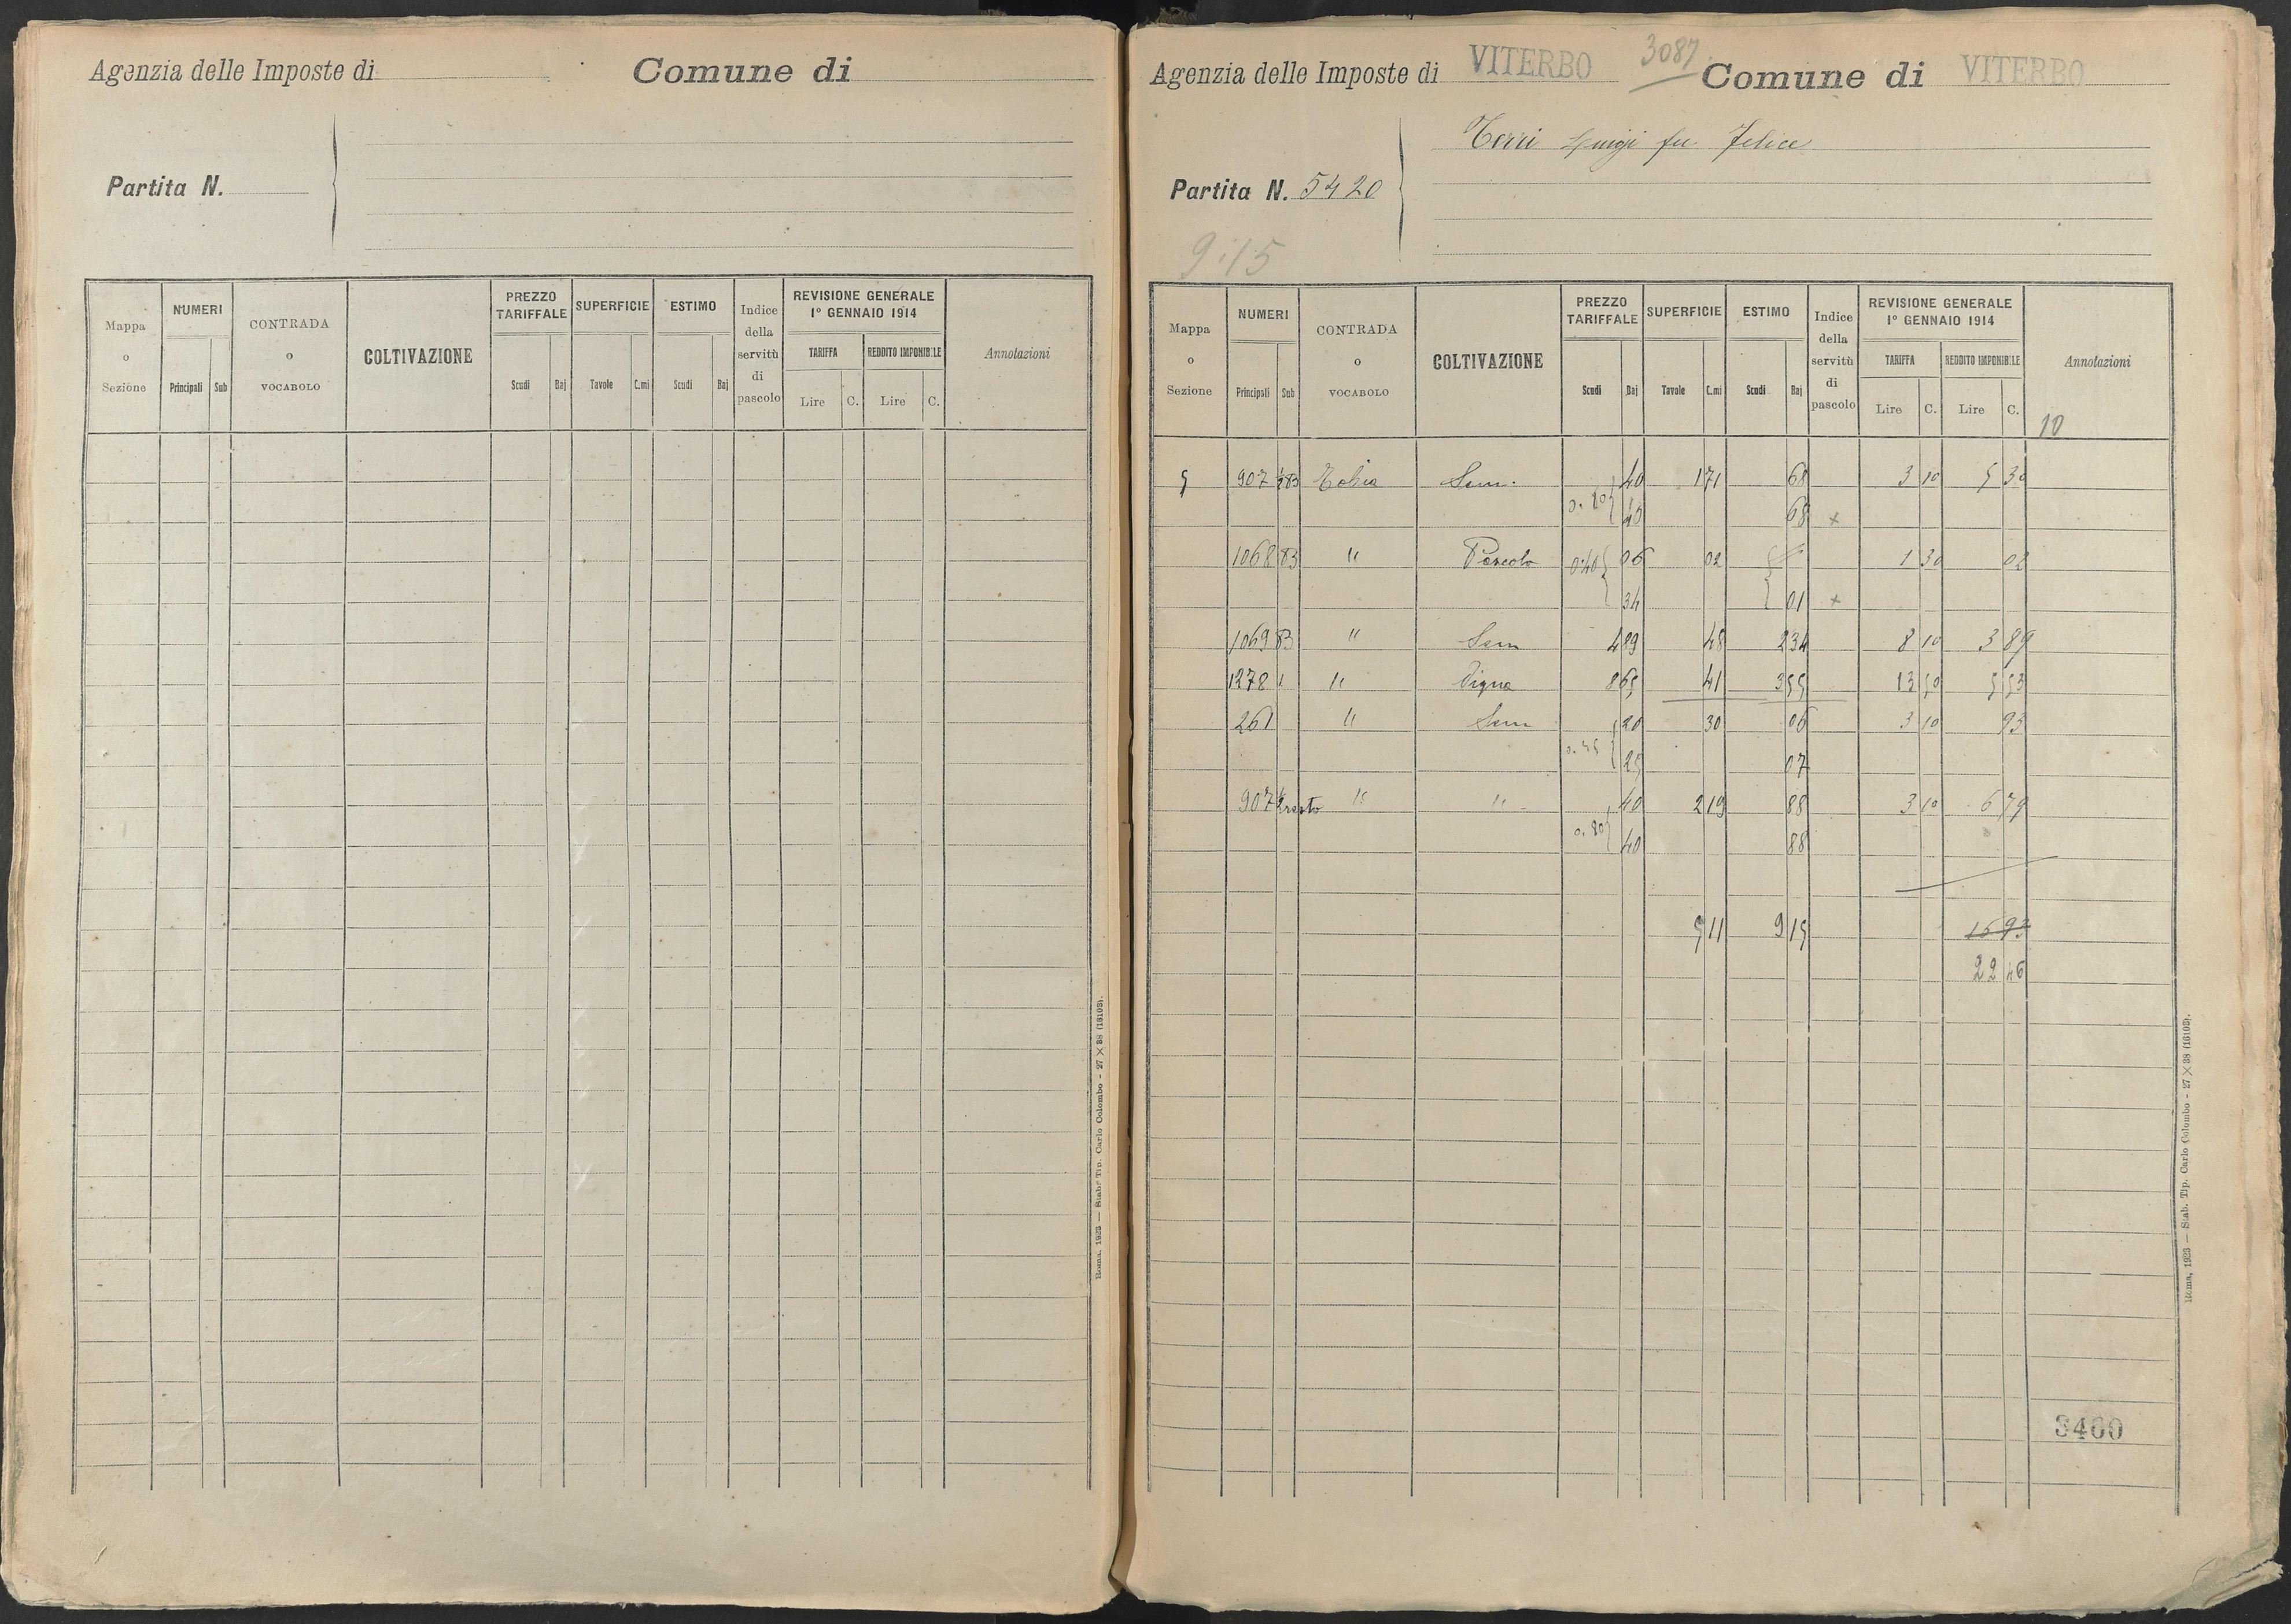 Agenzia delle Imposte di
Comune di
Partita N.
Mappa o Sezione
NUMERI
Principali Sub
CONTRADA o VOCABOLO
COLTIVAZIONE
PREZZO TARIFFALE
Scudi Baj
SUPERFICIE
Tavole C.mi
ESTIMO
Scudi Baj
Indice della servitù di pascolo
REVISIONE GENERALE 1° GENNAIO 1914
TARIFFA
Lire C.
REDDITO IMPONIBILE
Lire C.
Annotazioni
Roma, 1923 — Stab. Tip. Carlo Colombo - 27 X 38 (16103).
Agenzia delle Imposte di VITERBO 3087 Comune di VITERBO
Luigi fu Felice
Partita N. 5420
9:15
Mappa o Sezione
NUMERI
Principali Sub
CONTRADA o VOCABOLO
COLTIVAZIONE
PREZZO TARIFFALE
Scudi Baj
SUPERFICIE
Tavole C.mi
ESTIMO
Scudi Baj
Indice della servitù di pascolo
REVISIONE GENERALE 1° GENNAIO 1914
TARIFFA
Lire C.
REDDITO IMPONIBILE
Lire C.
Annotazioni
10
5 907 Tobia Sem. 40 1 71 68 3 10 5 30
0.80 40 68 x
1068 " Pascolo 0.40 06 02 1 30 02
34 01 x
1069 " Sem 4 89 48 2 34 8 10 3 89
1278 1 " Vigna 8 65 41 3 55 13 50 5 53
261 " Sem 20 30 06 3 10 93
0.45 25 07
907 resto " " 40 2 19 88 3 10 6 79
0.80 40 88
5 11 9 15 15 93
22 46
3460
Roma, 1923 — Stab. Tip. Carlo Colombo - 27 X 38 (16103).